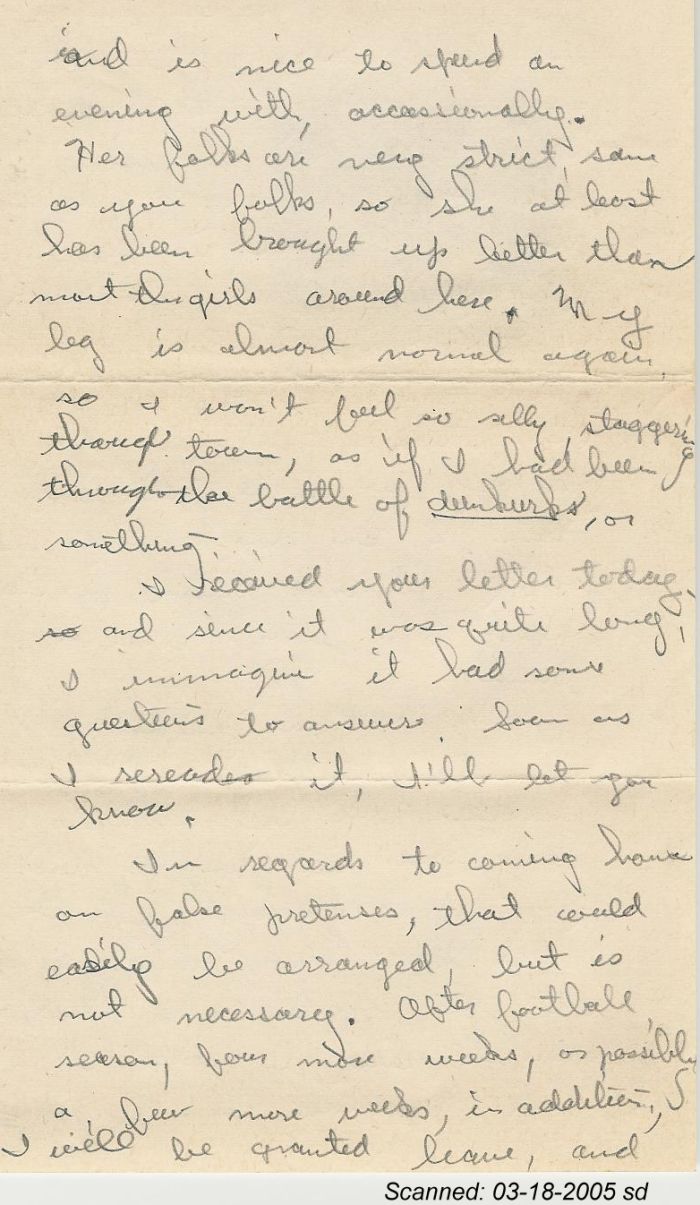 and is nice to spend an
evening with, occassionally.
Her folks are very strict, same
as your folks, so she at least
has been brought up better than
most the girls around here. My
leg is almost normal again,
so I won't feel so silly, staggering
through town, as if I had been
through the battle of dunkurks, or
something.
I received your letter today,
so and since it was quite long,
I immagine it had some
questions to answer. Soon as
I reread it, I'll let you
know.
In regards to coming home
on false pretenses, that could
easily be arranged, but is
not necessary. After football
season, four more weeks, or possibly
a few more weeks, in addition, I
I will be granted leave, and
Scanned: 03-18-2005 sd